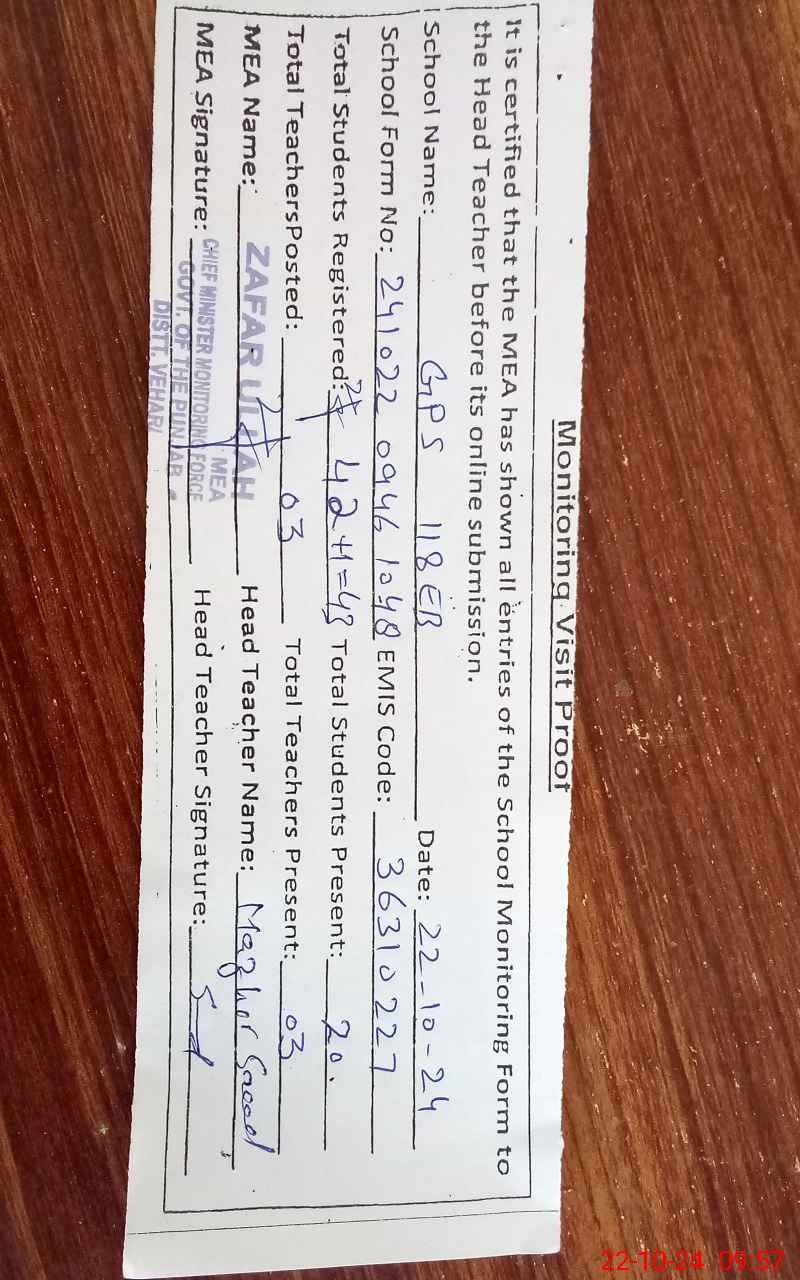 Monitoring Visit Proof
It is certified that the MEA has shown all entries of the School Monitoring Form to
the Head Teacher before its online submission.
School Name: GPS 118 EB Date: 22-10-24
School Form No: 241022 0946 1048 EMIS Code: 36310227
Total Students Registered: 42+1=43 Total Students Present: 20.
Total TeachersPosted: 03 Total Teachers Present: 03
MEA Name: ZAFAR ULLAH Head Teacher Name: Mazhar Saeed
MEA Signature: Head Teacher Signature:
MEA
CHIEF MINISTER MONITORING FORCE
GOVT. OF THE PUNJAB
DISTT. VEHARI
22-10-24 09:57